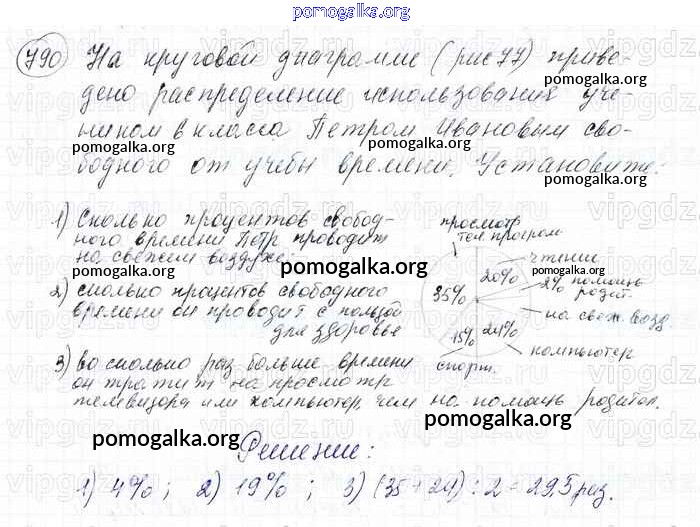 pomogalka.org
790 На круговой диаграмме (рис 77) приве-
pomogalka.org
дено распределение использования уче-
ником 6 класса Петром Ивановым сво-
pomogalka.org
pomogalka.org
бодного от учебы времени. Установите:
pomogalka.org
1) Сколько процентов свобод-
ного времени Петр проводит
на свежем воздухе;
pomogalka.org
2) сколько процентов свободного
времени он проводит с пользой
для здоровье
3) во сколько раз больше времени
он тратит на просмотр
телевизора или компьютер, чем на помощь родител.
просмотр
тел. програм.
чтение
20%
2% помощь
родит.
35%
на свеж. возд.
15%
24%
компьютер
спорт.
pomogalka.org
pomogalka.org
Решение:
pomogalka.org
1) 4%; 2) 19%; 3) (35+24):2=29,5 раз.
pomogalka.org